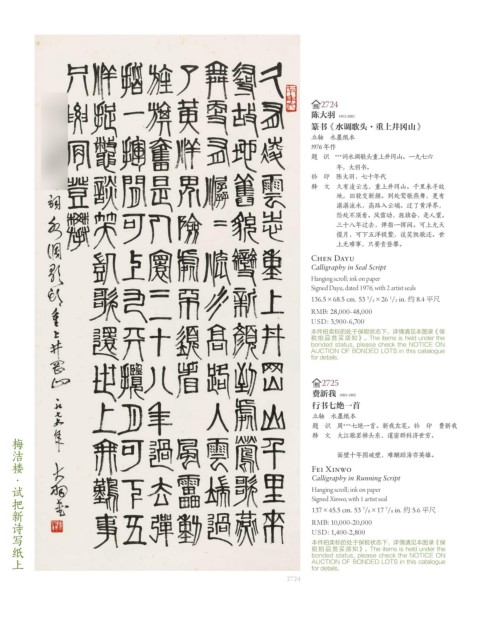 久有凌雲志重上井岡山千里來
尋故地舊貌變新顏到處鶯歌燕
舞更有潺=流水高路入雲端過
了黃洋界險處不須看風雷動
旌旗奮是人寰三十八年過去彈
指一揮間可上九天攬月可下五
洋捉鱉談笑凱歌還世上無難事
只要肯登攀
詞水调歌頭重上井岡山 一九七六年 大羽書
梅洁楼·试把新诗写纸上
2724
陈大羽 1912-2001
篆书《水调歌头·重上井冈山》
立轴 水墨纸本
1976 年作
题 识 ***词水调歌头重上井冈山。一九七六年，大羽书。
钤 印 陈大羽、七十年代
释 文 久有凌云志，重上井冈山。千里来寻故地，旧貌变新颜。到处莺歌燕舞，更有潺潺流水，高路入云端。过了黄洋界，险处不须看。风雷动，旌旗奋，是人寰。三十八年过去，弹指一挥间。可上九天揽月，可下五洋捉鳖，谈笑凯歌还。世上无难事，只要肯登攀。
CHEN DAYU
Calligraphy in Seal Script
Hanging scroll; ink on paper
Signed Dayu, dated 1976, with 2 artist seals
136.5 × 68.5 cm. 53 3/4 × 26 1/2 in. 约 8.4 平尺
RMB: 28,000-48,000
USD: 3,900-6,700
本件拍卖标的处于保税状态下，详情请见本图录《保税拍品竞买须知》。The items is held under the bonded status, please check the NOTICE ON AUCTION OF BONDED LOTS in this catalogue for details.
2725
费新我 1903-1992
行书七绝一首
立轴 水墨纸本
题 识 周***七绝一首。新我左笔。钤 印 费新我
释 文 大江歌罢掉头东，邃密群科济世穷。
面壁十年图破壁，难酬蹈海亦英雄。
FEI XINWO
Calligraphy in Running Script
Hanging scroll; ink on paper
Signed Xinwo, with 1 artist seal
137 × 45.5 cm. 53 7/8 × 17 7/8 in. 约 5.6 平尺
RMB: 10,000-20,000
USD: 1,400-2,800
本件拍卖标的处于保税状态下，详情请见本图录《保税拍品竞买须知》。The items is held under the bonded status, please check the NOTICE ON AUCTION OF BONDED LOTS in this catalogue for details.
2724